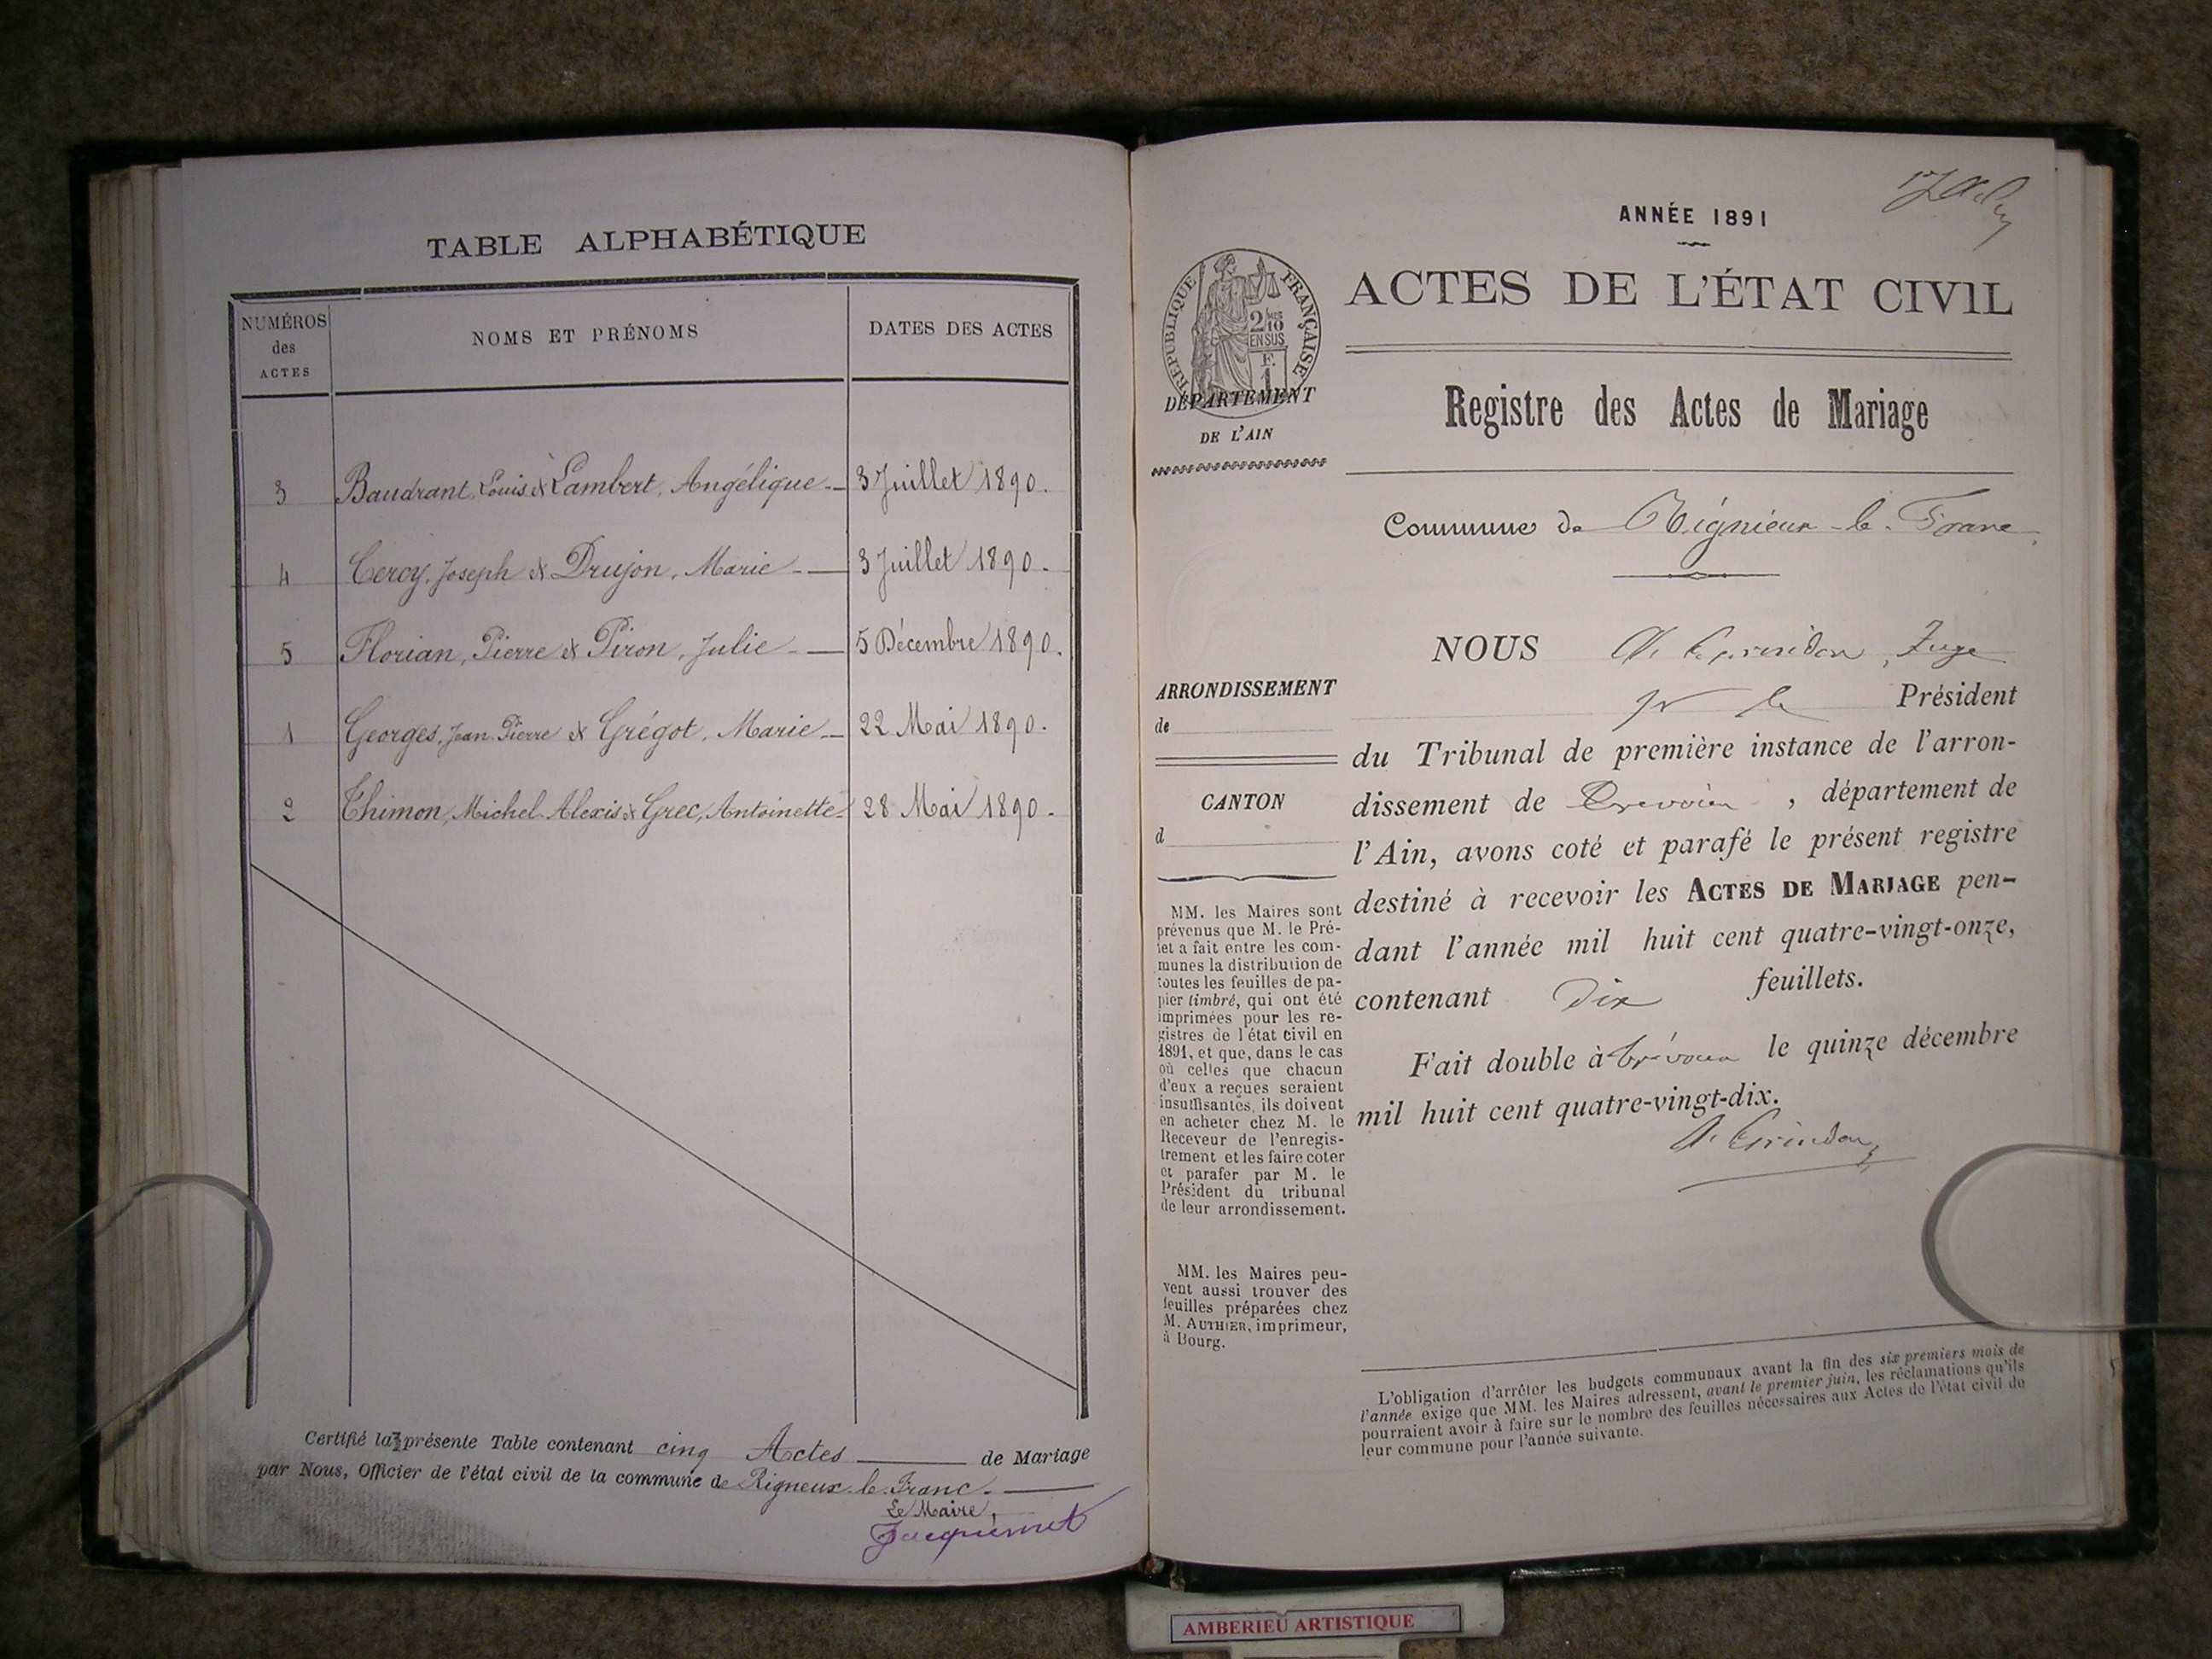 TABLE ALPHABÉTIQUE
NUMÉROS des ACTES
NOMS ET PRÉNOMS
DATES DES ACTES
3 Baudrant, Louis & Lambert, Angélique 3 Juillet 1890.
4 Cercy, Joseph & Drujon, Marie 3 Juillet 1890.
5 Florian, Pierre & Piron, Julie 5 Décembre 1890.
1 Georges, Jean Pierre & Grégot, Marie 22 Mai 1890.
2 Thimon, Michel Alexis & Grec, Antoinette 28 Mai 1890.
Certifié la présente Table contenant cinq Actes de Mariage
par Nous, Officier de l'état civil de la commune de Rigneux-le-Franc.
Le Maire,
Jacquemet
ANNÉE 1891
RÉPUBLIQUE FRANÇAISE
2/10 EN SUS
F. 1
DÉPARTEMENT
DE L'AIN
ACTES DE L'ÉTAT CIVIL
Registre des Actes de Mariage
Commune de Rignieux-le-Franc
ARRONDISSEMENT
de
CANTON
d
MM. les Maires sont
prévenus que M. le Pré-
fet a fait entre les com-
munes la distribution de
toutes les feuilles de pa-
pier timbré, qui ont été
imprimées pour les re-
gistres de l'état civil en
1891, et que, dans le cas
où celles que chacun
d'eux a reçues seraient
insuffisantes, ils doivent
en acheter chez M. le
Receveur de l'enregis-
trement et les faire coter
et parafer par M. le
Président du tribunal
de leur arrondissement.
MM. les Maires peu-
vent aussi trouver des
feuilles préparées chez
M. AUTHIER, imprimeur,
à Bourg.
NOUS Juge
pr le Président
du Tribunal de première instance de l'arron-
dissement de Trévoux, département de
l'Ain, avons coté et parafé le présent registre
destiné à recevoir les ACTES DE MARIAGE pen-
dant l'année mil huit cent quatre-vingt-onze,
contenant Dix feuillets.
Fait double à Trévoux le quinze décembre
mil huit cent quatre-vingt-dix.
L'obligation d'arrêter les budgets communaux avant la fin des six premiers mois de
l'année exige que MM. les Maires adressent, avant le premier juin, les réclamations qu'ils
pourraient avoir à faire sur le nombre des feuilles nécessaires aux Actes de l'état civil de
leur commune pour l'année suivante.
AMBERIEU ARTISTIQUE